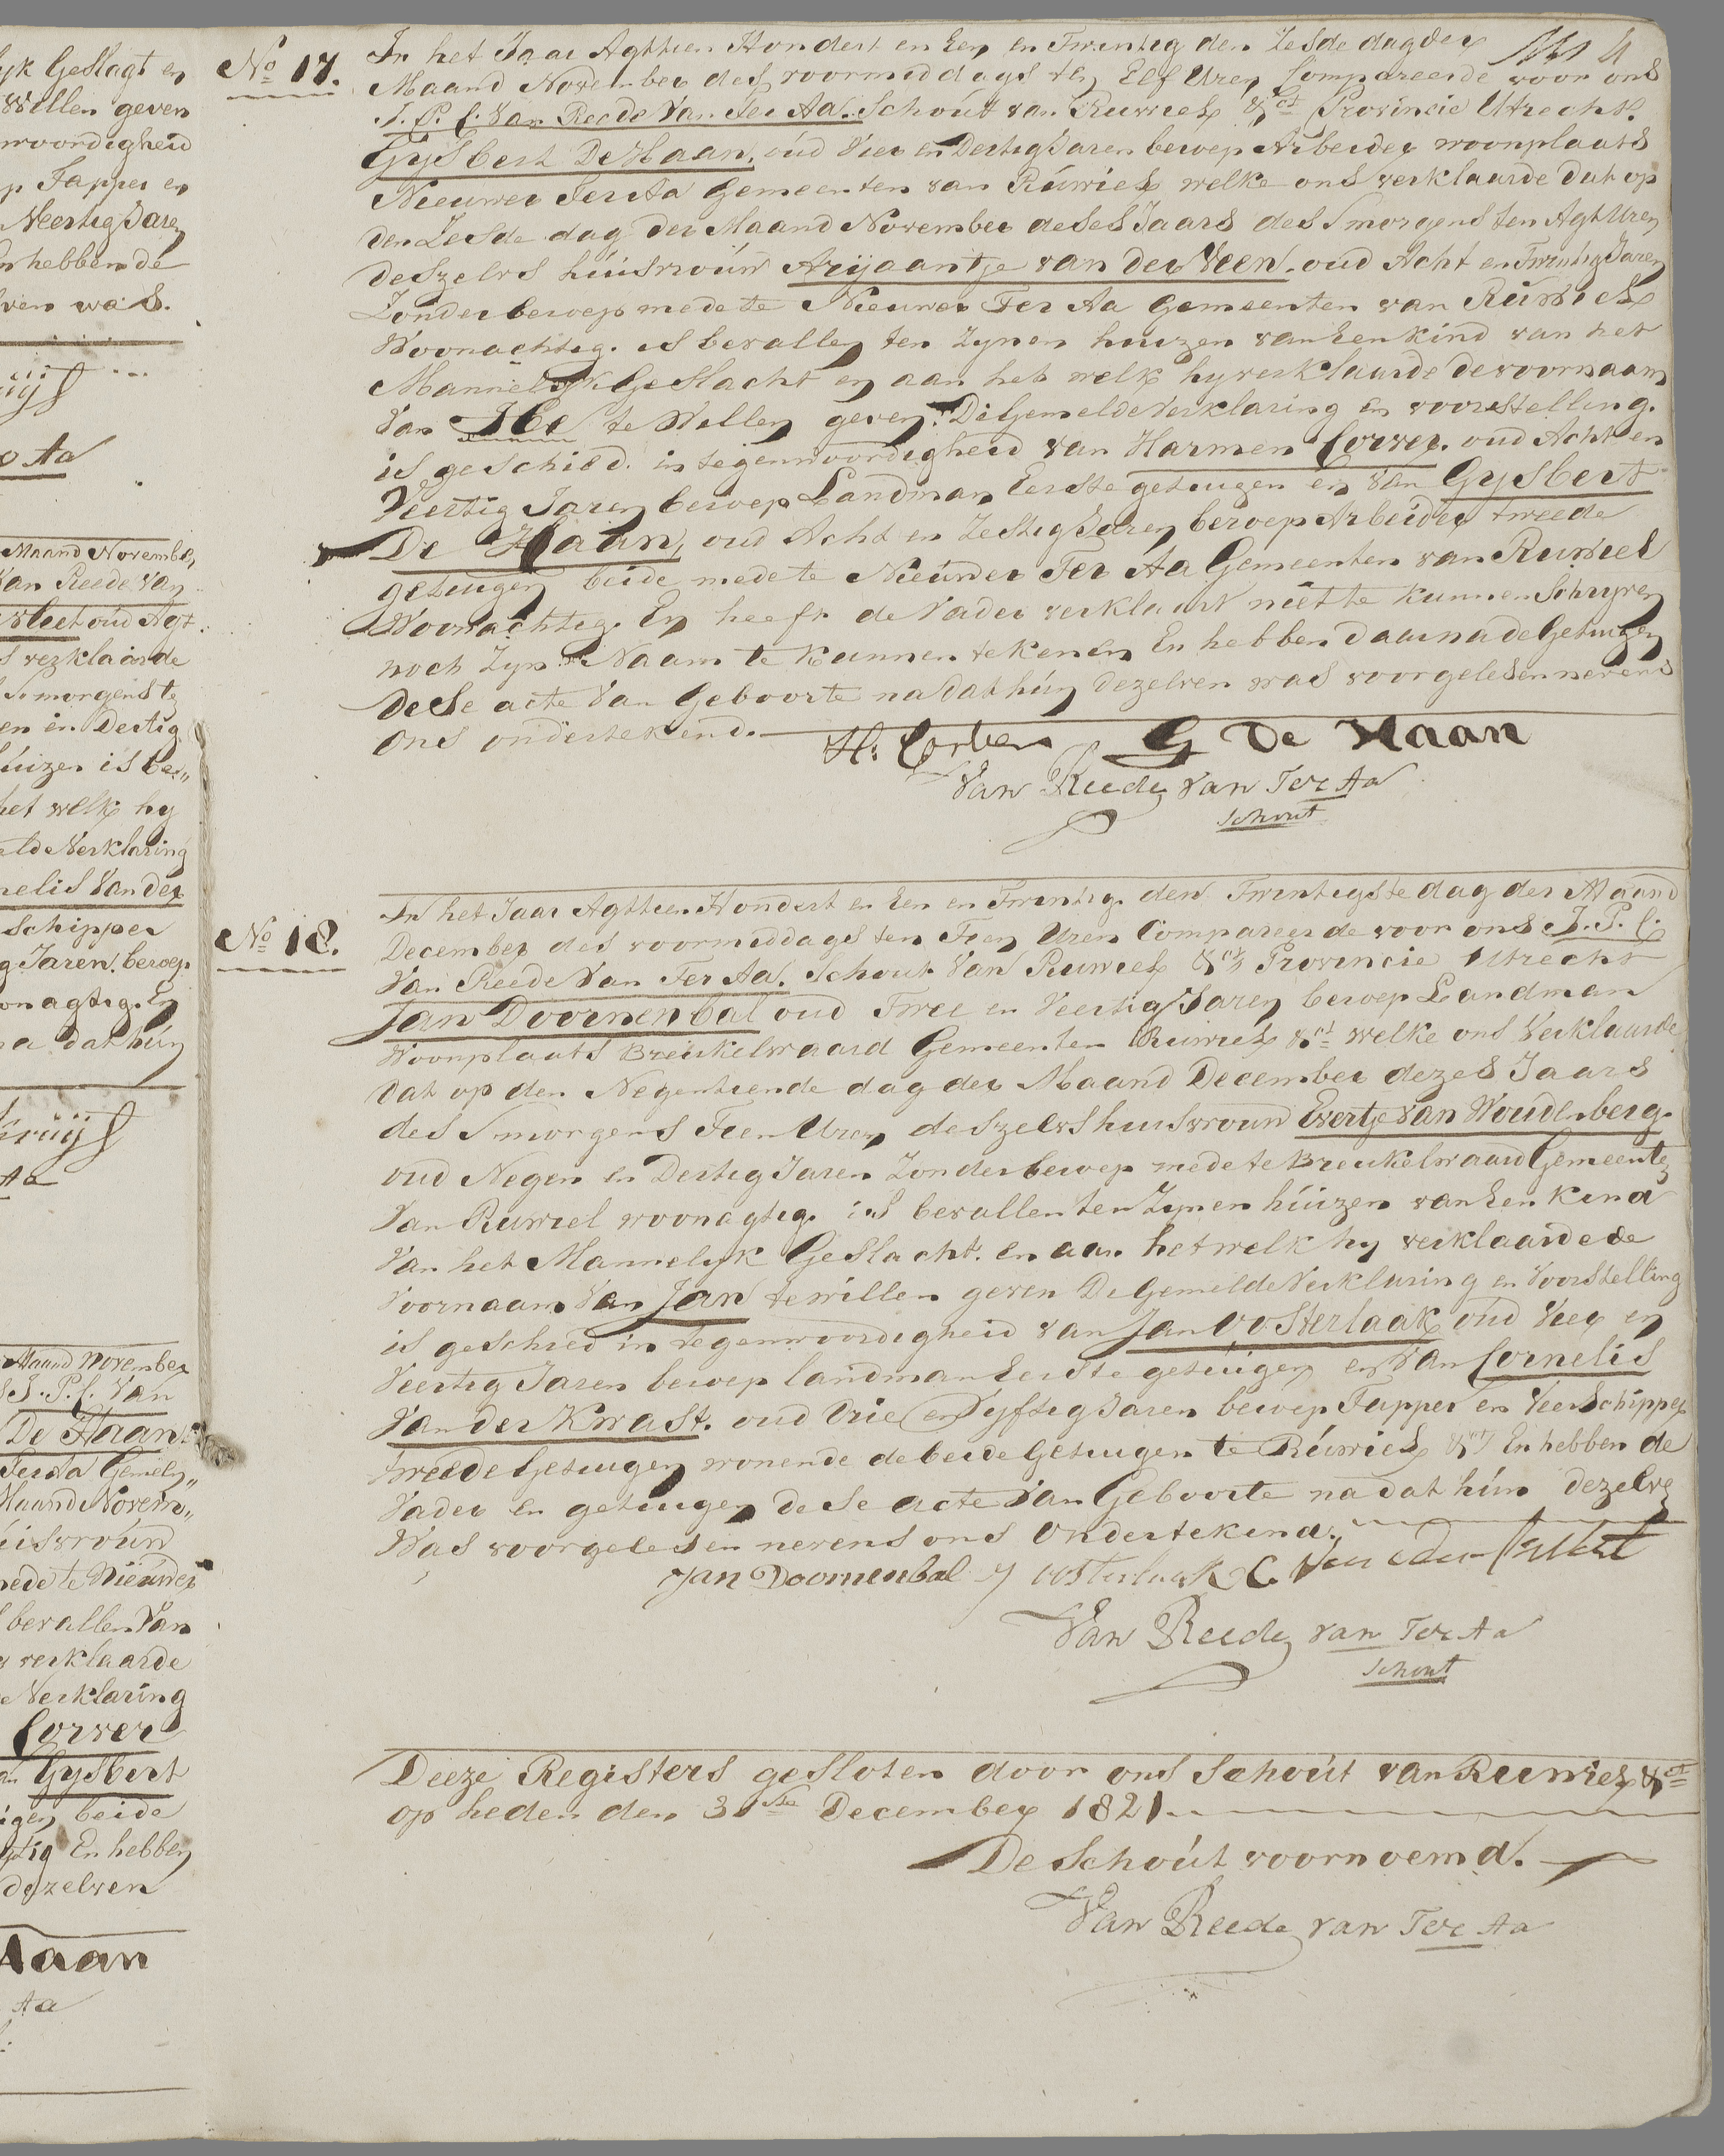 yk Geslagt en
Willen geven
nwoordigheid
p Tapper en
Neertig Jaren
n hebben de
ven was.
Aa
Maand November
van Reede van
vleet oud Agt
verklaarde
smorgens te
en en Dertig
huizen is be„
het welk hy
elde Verklaring
nelis Van der
Schipper
g Jaren. beroep
onagtig. En
na dat hún
Aa
Maand November
J. P. C. Van
De Haan
Ter Aa Gemeen„
Maand Novem„
úisvroúw
mede te Nieuwer
bevallen Van
verklaarde
Verklaring
Corver
an Gysbert
igen beide
gtig En hebben
dezelven
Haan
Aa
No 17.
In het Jaar Agttien Hondert en Een en Twintig den Zesde dag der
Maand November des voormiddags ten Elf Uren Compareerde voor ons
J. P. C. Van Reede Van Ter Aa. Schout van Ruwiel &ct Provincie Utrecht.
Gysbert De Haan, oud Vier en Dertig Jaren beroep Arbeider woonplaats
Nieuwer Ter Aa Gemeenten van Rúwiel welke ons verklaarde dat op
den Zesde dag der Maand November deses Jaars des smorgens ten Agt Uren
deszelvs húisvroúw Arijaantje van der Veen. oud Acht en Twintig Jaren
Zonder beroep mede te Nieuwer Ter Aa Gemeenten van Ruwiel
Woonachtig. is bevallen ten zynen huizen van Een kind van het
Mannelyk Geslacht en aan het welk hy verklaarde de voornaam
Van te Willen geven. De Gemelde Verklaring en voorstelling.
is geschied. in tegenwoordigheid van Harmen Corver. oud Acht en
Veertig Jaren beroep Landman Eerste getuigen en van Gysbert
De Haan, oud Acht en Zestig Jaren beroep Arbeider tweede
getuigen beide mede te Nieúwer Ter Aa Gemeenten van Ruwiel
Woonachtig. En heeft de Vader verklaart niet te kunnen Schryven
noch Zyn Naam te kunnen tekenen En hebben daarna de Getuigen
dese acte Van Geboorte na dat hún dezelven was voorgelesen nevens
ons ondertekend.
H. Corver G De Haan
Van Reede van Ter Aa
Schout
No 18.
In het Jaar Agttien Hondert en Een en Twintig. den Twintigste dag der Maand
December des voormiddags ten Tien Uren Compareerde voor ons J. P. C.
Van Reede Van Ter Aa. Schout Van Ruwiel &ct Provincie Utrecht
Jan Doornenbal oud Twee en Veertig Jaren beroep Landman
Woonplaats Breukelwaard Gemeenten Ruwiel &ct welke ons Verklaarde
dat op den Negentiende dag der Maand December dezes Jaars
des Smorgens Tien Uren deszelvs huisvrouw Evertje van Woudenberg.
oud Negen en Dertig Jaren Zonder beroep mede te Breukelwaard Gemeenten
Van Ruwiel woonagtig. is bevallen ten Zynen húizen van Een kind
Van het Mannelyk Geslacht. en aan het welk hy verklaarde de
Voornaam Van Jan te willen geven De Gemelde Verklaring en Voorstelling
is geschied in tegenwoordigheid van Jan Oosterlaak oud Vier en
Veertig Jaren beroep landman Eerste getúigen en Van Cornelis
Van der Kwast. oud Drie en Vyftig Jaren beroep Tapper en Veerschipper
tweede Getuigen wonende de beide Getuigen te Rúwiel &ct En hebben de
Vader en getuigen dese acte Van Geboorte na dat hún dezelve
Was voorgelesen nevens ons Ondertekend.
Jan Doornenbal J oosterlaak C. Van der
Van Reede van Ter Aa
Schout
Deeze Registers gesloten door ons Schoút van Ruwiel &ct
op heden den 31ste December 1821.
De Schoút voornoemd.
Van Reede van Ter Aa